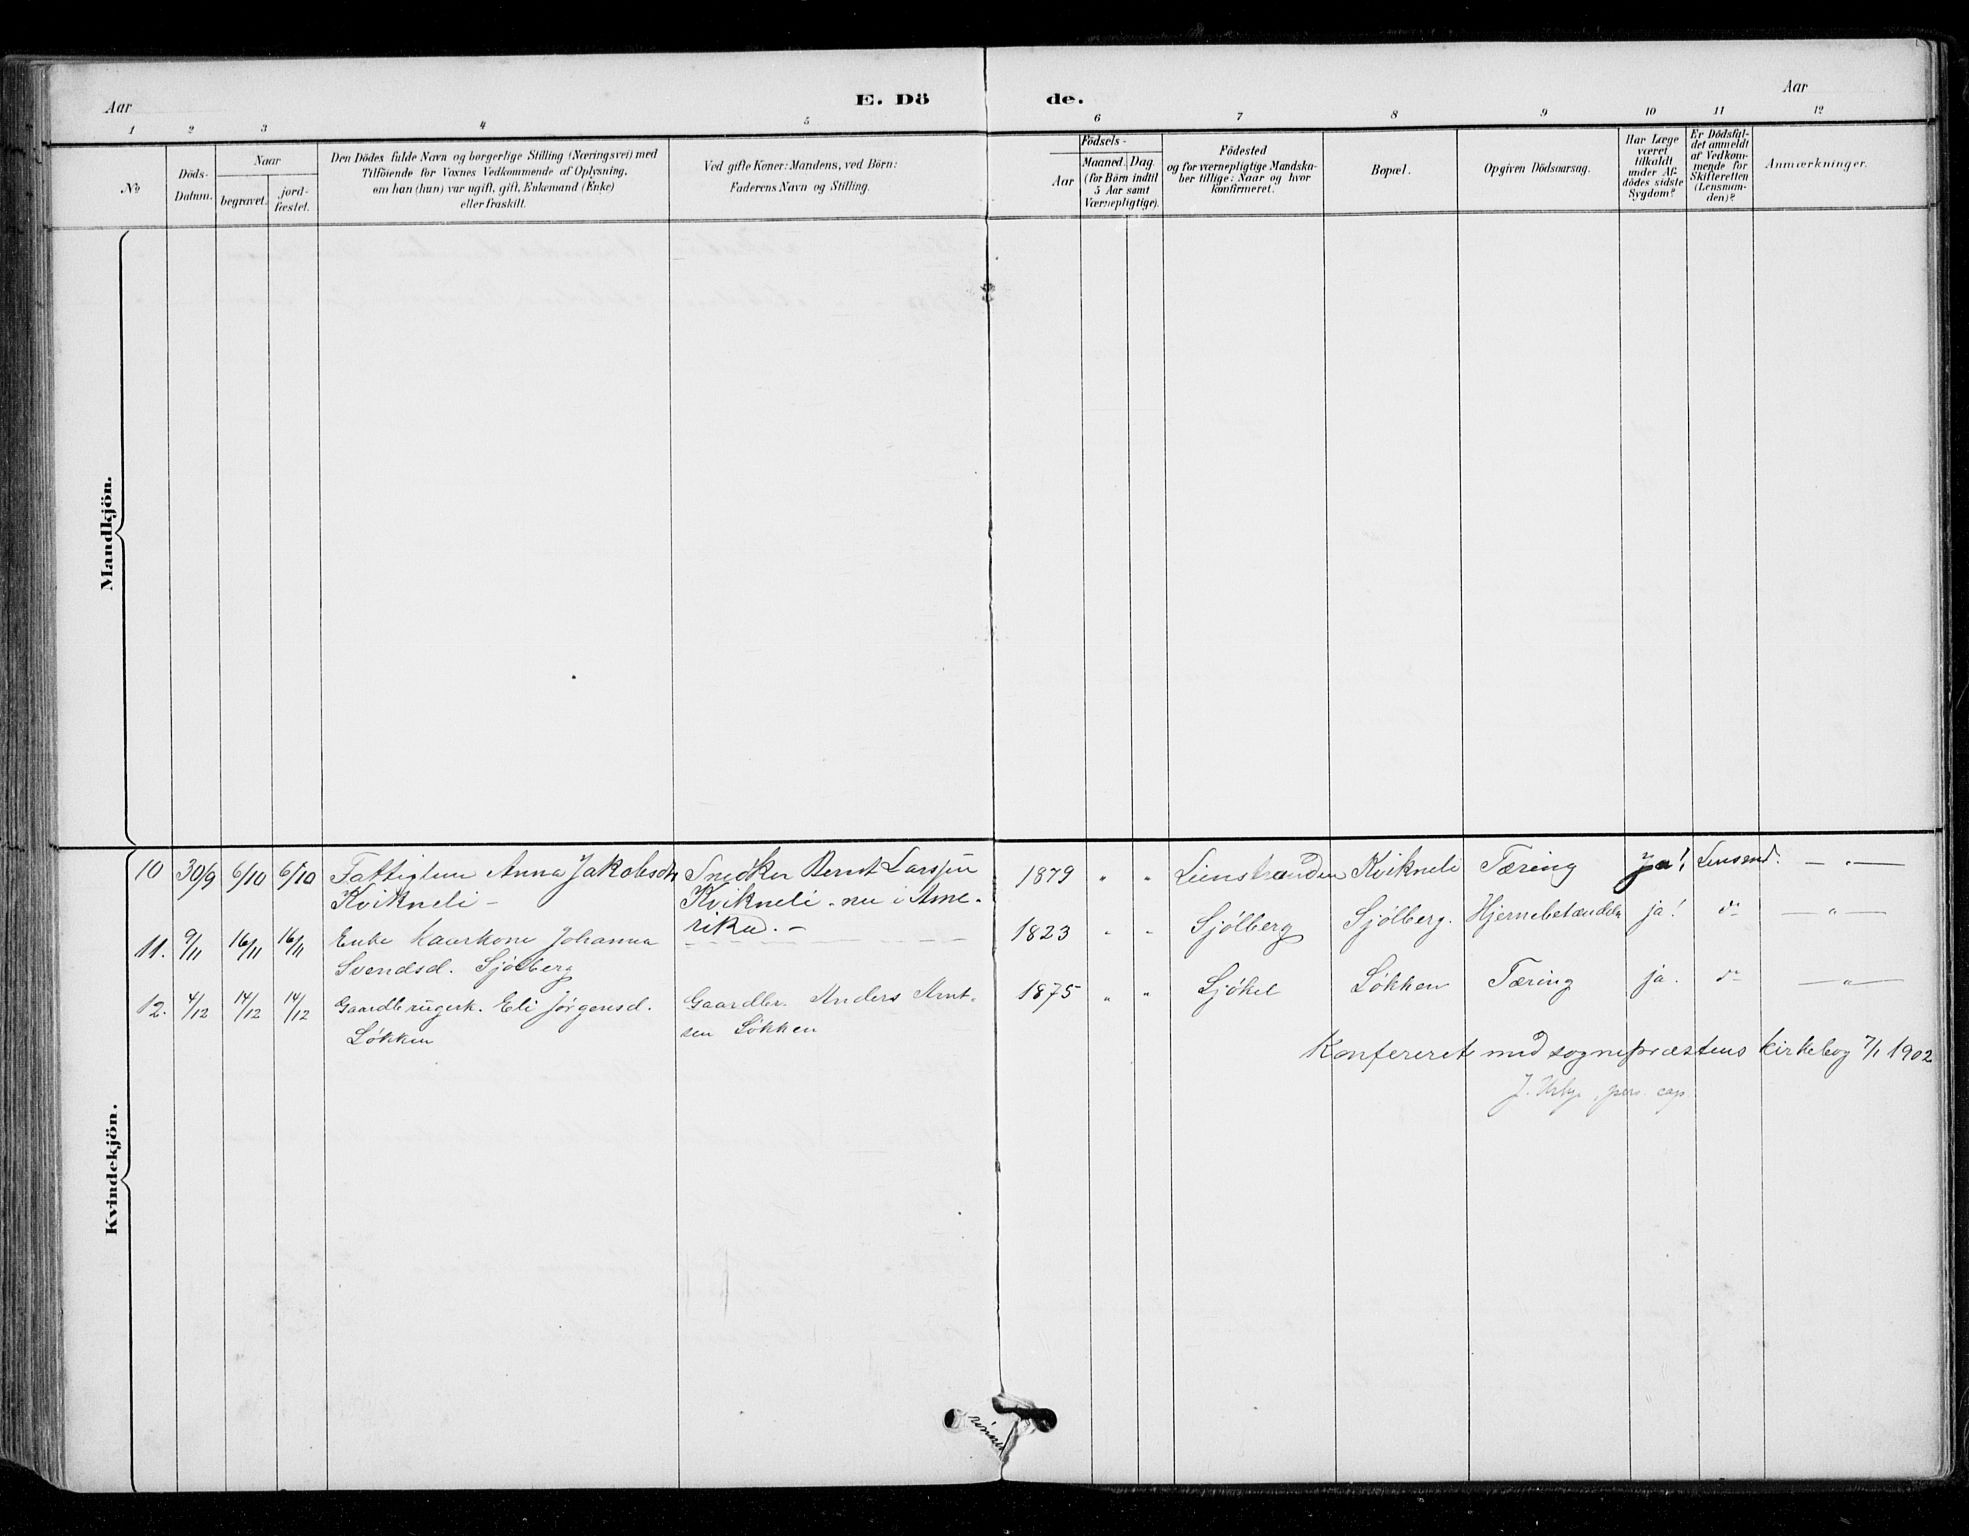 Aar
E. Dö
de.
Aar
1 2 3 4 5 6 7 8 9 10 11 12
No
Döds-
Datum.
Naar
begravet.
jord-
fæstet.
Den Dödes fulde Navn og borgerlige Stilling (Næringsvei) med
Tilföiende for Voxnes Vedkommende af Oplysning,
om han (hun) var ugift, gift, Enkemand (Enke)
eller fraskilt.
Ved gifte Koner: Mandens, ved Börn:
Faderens Navn og Stilling.
Födsels-
Aar
Maaned. Dag.
(for Börn indtil
5 Aar samt
Værnepligtige).
Födested
og for værnepligtige Mandska-
ber tillige: Naar og hvor
konfirmeret.
Bopæl.
Opgiven Dödsaarsag.
Har Læge
været
tilkaldt
under Af-
dödes sidste
Sygdom?
Er Dödsfal-
det anmeldt
af Vedkom-
mende for
Skifteretten
(Lensman-
den)?
Anmærkninger.
Mandkjön.
Kvindekjön.
10 30/9 6/10 6/10 Fattiglem Anna Jakobsdt Snedker Bernt Larssen 1879 " " Leinstranden Kvikneli Tæring ja! Lensmd. — " —
Kvikneli - Kvikneli - nu i Ame-
rika. -
11. 9/11 16/11 16/11 Enke Kaarkone Johanna — — 1823 " " Sjølberg Sjølberg. Hjernebetændelse ja! do — " —
Svendsd. Sjølberg
12. 4/12 14/12 14/12 Gaardbrugerk. Eli Jørgensd. Gaardbr. Anders Arnt- 1875 " " Sjøkel Løkken Tæring ja. do — " —
Løkken sen Løkken
Konfereret med sognepræstens kirkebog 7/1 1902
pers. cap.